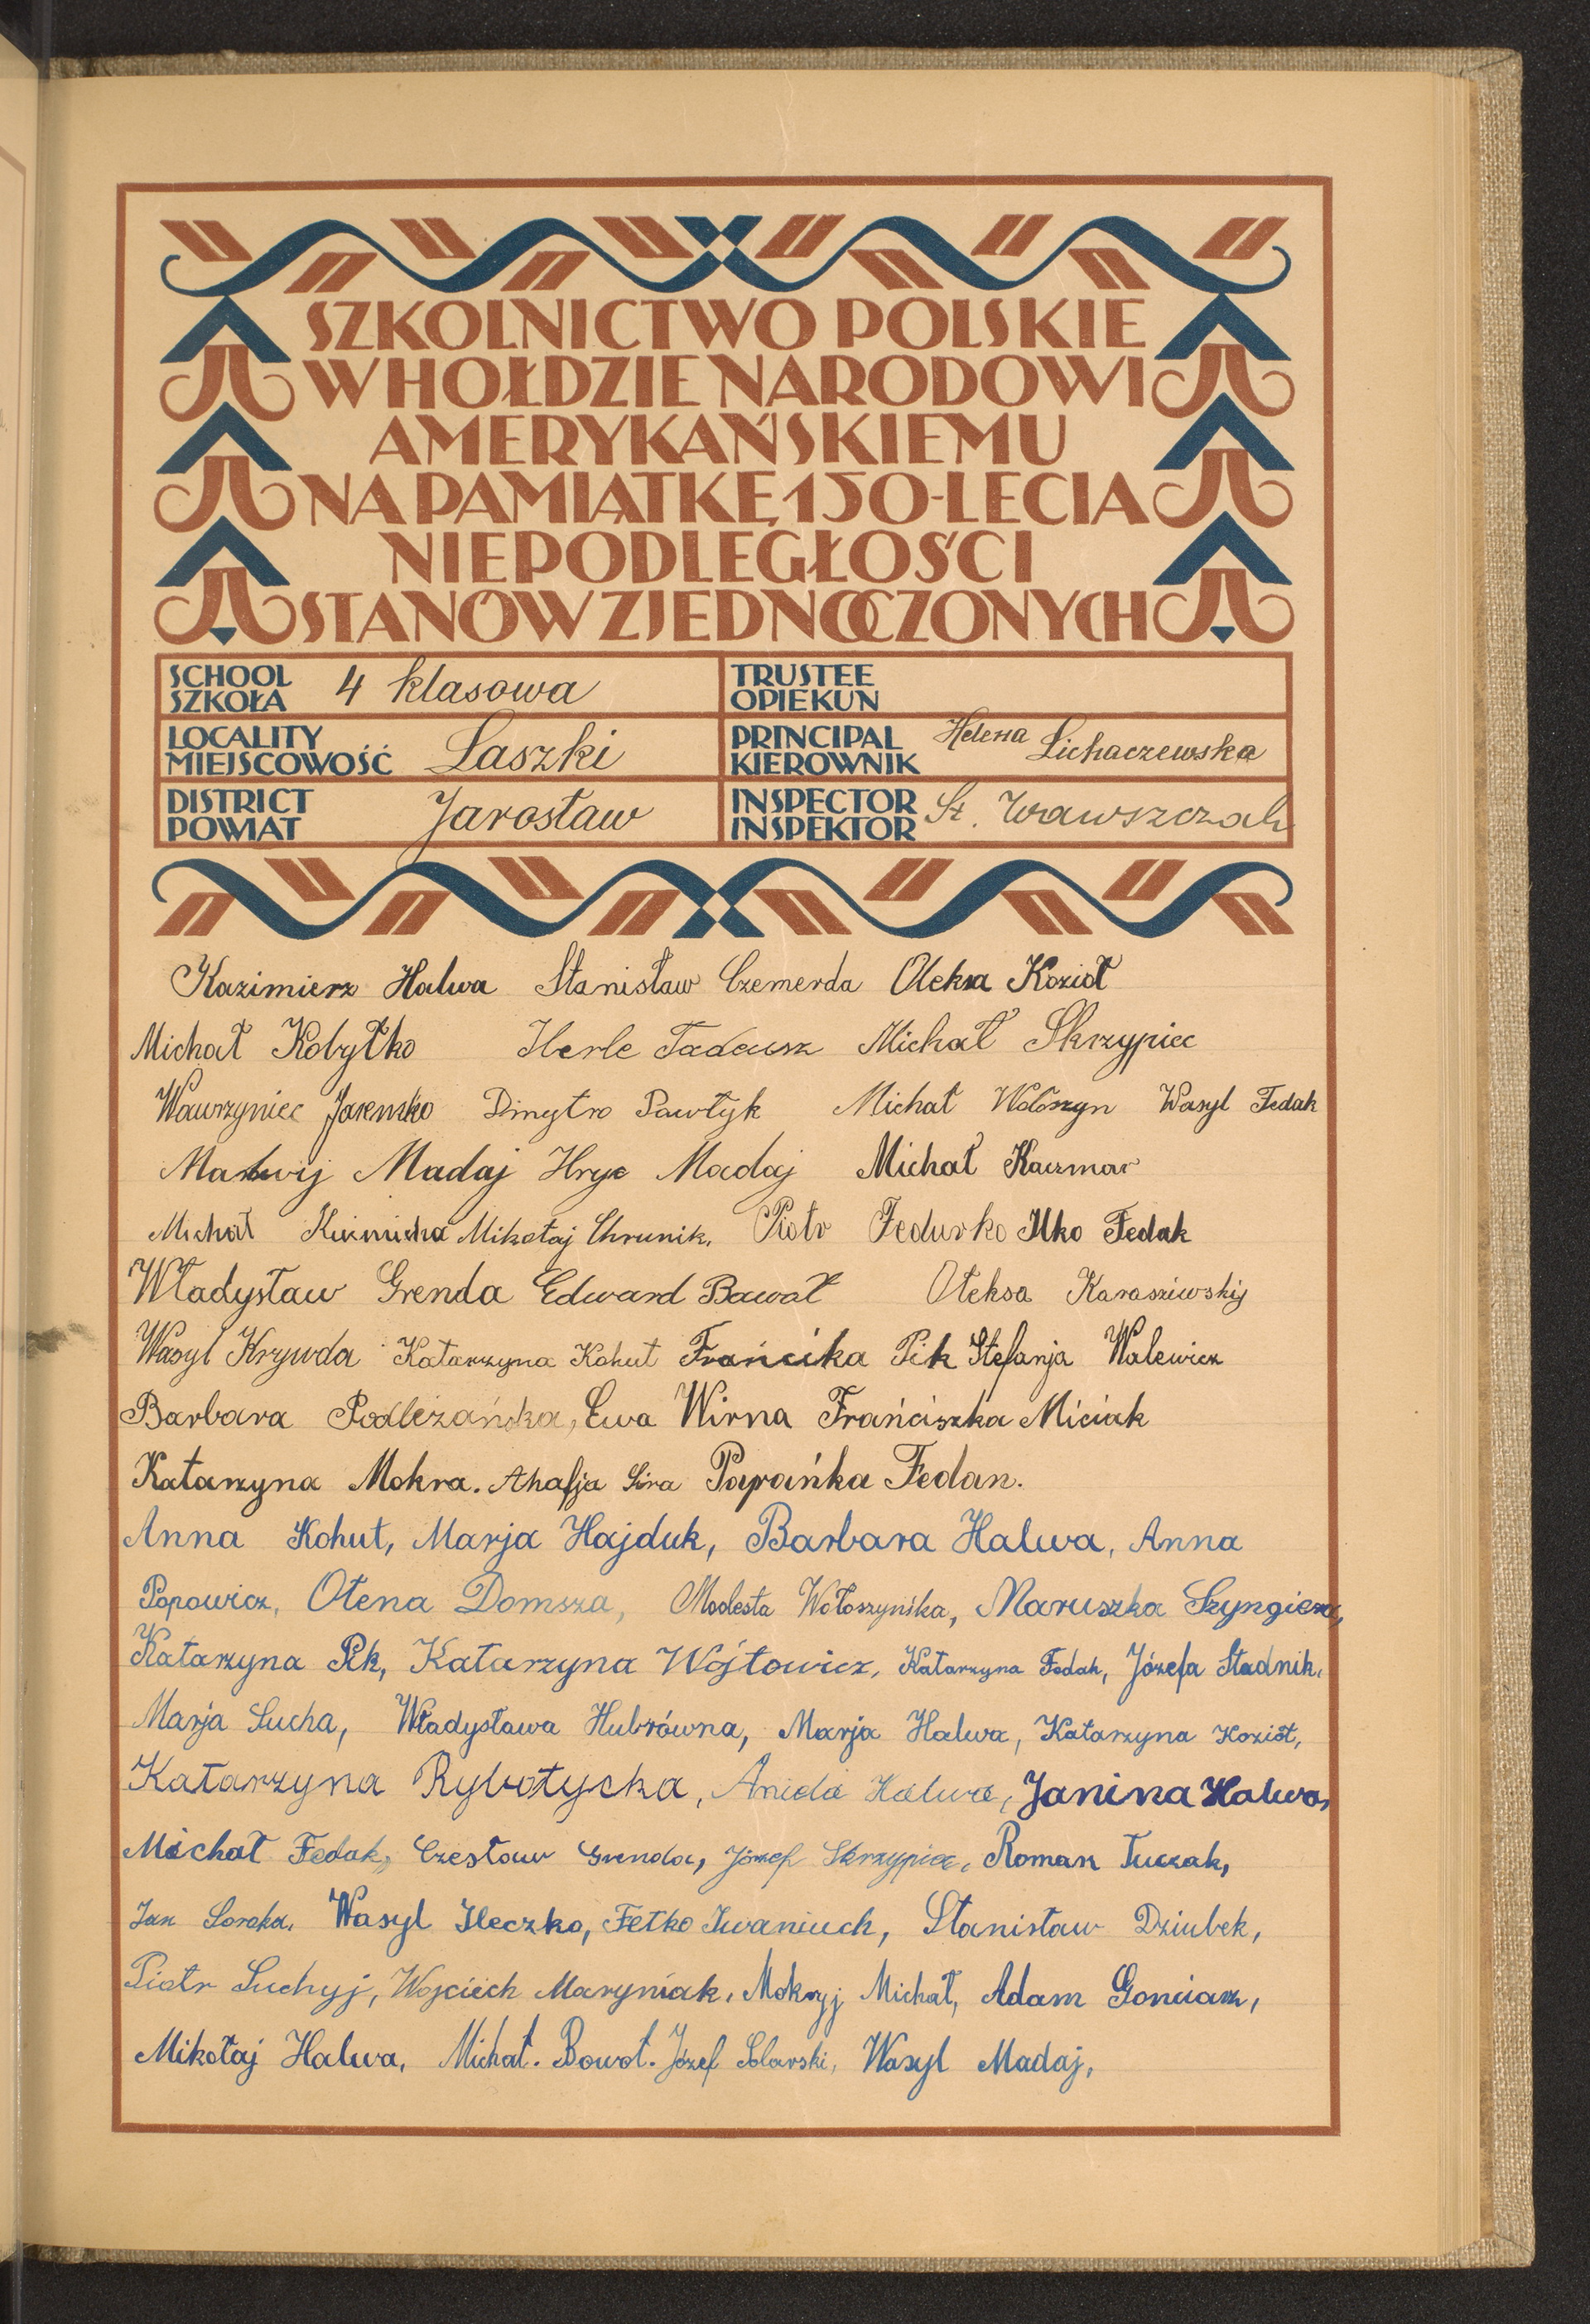 SZKOLNICTWO POLSKIE
W HOŁDZIE NARODOWI
AMERYKAŃSKIEMU
NA PAMIĄTKĘ 150-LECIA
NIEPODLEGŁOŚCI
STANÓW ZJEDNOCZONYCH
SCHOOL SZKOŁA 4 klasowa
TRUSTEE OPIEKUN
LOCALITY MIEJSCOWOŚĆ Laszki
PRINCIPAL KIEROWNIK Helena Lichaczewska
DISTRICT POWIAT Jarosław
INSPECTOR INSPEKTOR St. Wawszczak
Kazimierz Halwa Stanisław Czemerda Oleksa Kozioł
Michał Kobyłko Herle Tadeusz Michał Skrzypiec
Wawrzyniec Jaremko Dmytro Pawłyk Michał Wołoszyn Wasyl Fedak
Matwij Madaj Hryc Madaj Michał Kaczmar
Michał Mikołaj Chrunik. Piotr Fedurko Ilko Fedak
Władysław Grenda Edward Bawoł Ołeksa Karaszewskij
Wasyl Krywda Katarzyna Kohut Frańcika Pik Stefanja Walewicz
Barbara Podleżańska, Ewa Wirna Frańciszka Miciak
Katarzyna Mokra. Ahafja Sira Parańka Fedan.
Anna Kohut, Marja Hajduk, Barbara Halwa, Anna
Popowicz, Ołena Domsza, Modesta Wołoszynika, Maruszka Szyngiera,
Katarzyna Pik, Katarzyna Wójtowicz, Katarzyna Fedak, Józefa Stadnik,
Marja Sucha, Władysława Hubrówna, Marja Halwa, Katarzyna Kozioł,
Katarzyna Rybotycka, Aniela Halwa, Janina Halwa,
Michał Fedak, Czesław Grenda, Józef Skrzypiec, Roman Tuczak,
Jan Soroka, Wasyl Ileczko, Fetko Iwaniuch, Stanisław Dziubek,
Piotr Suchyj, Wojciech Maryniak, Mokryj Michał, Adam Gonciarz,
Mikołaj Halwa, Michał. Bowoł. Józef Solarski, Wasyl Madaj,